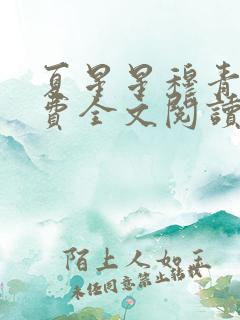 夏星星穆青
费全文阅讀
陌上人如玉
未经同意禁止转载